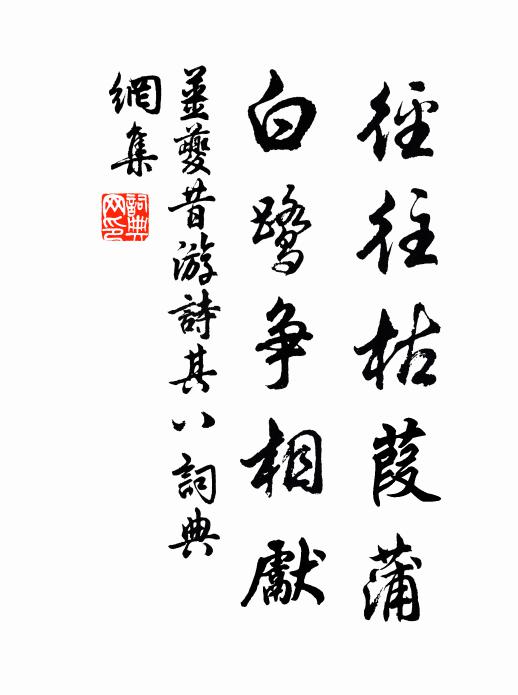 徑往枯葭蒲
白鷺争相獻
姜夔昔游詩其八詞典
網集
詞典網印